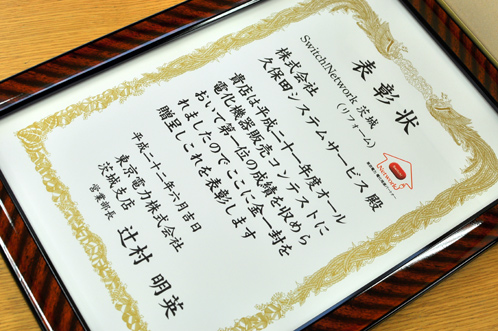 表彰状
Switch!Network 茨城
（リフォーム）
株式会社
久保田システムサービス 殿
貴店は平成二十一年度オール
電化機器販売コンテストに
おいて第一位の成績を収めら
れましたのでここに金一封を
贈呈しこれを表彰します
平成二十二年六月吉日
東京電力株式会社
茨城支店
営業部長 辻村 明英
Network